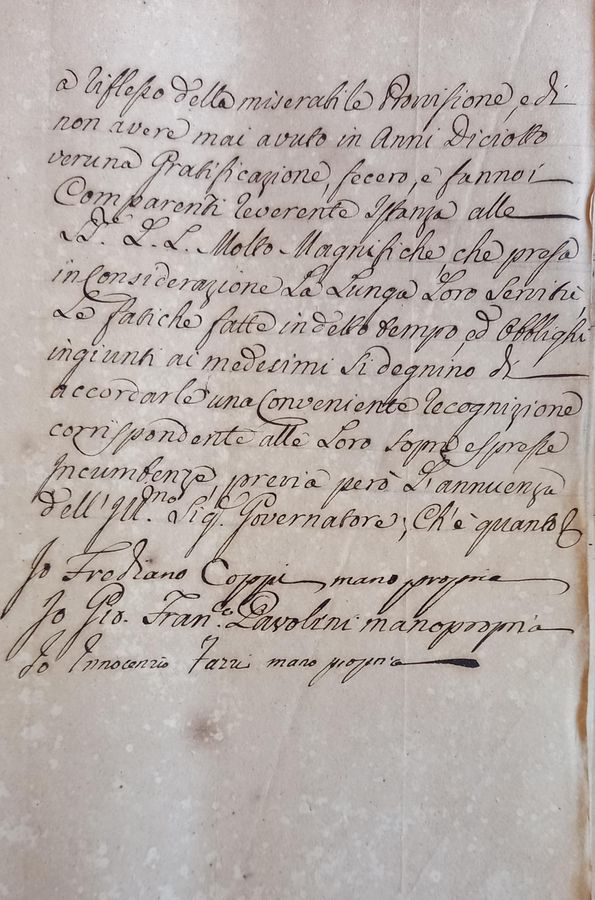 a riflesso della miserabile Provisione, e di
non avere mai avuto in Anni Diciotto
veruna Gratificazione, fecero, e fanno i
Comparenti reverente Istanza alle
SS.e L. L. Molto Magnifiche che presa
in Considerazione La Lunga Loro Servitù,
Le fatiche fatte in detto tempo, ed Obblighi
ingiunti ai medesimi Si degnino di
accordarle una Conveniente recognizione
corrispondente alle Loro sopra espresse
Incumbenze, previa però L'annuenza
dell'Ill.mo Sig.r Governatore; Ch'è quanto &
Io Frediano Coppi mano propria
Io Gio. Fran.co Pavolini mano propria
Io Innocenzio mano propria